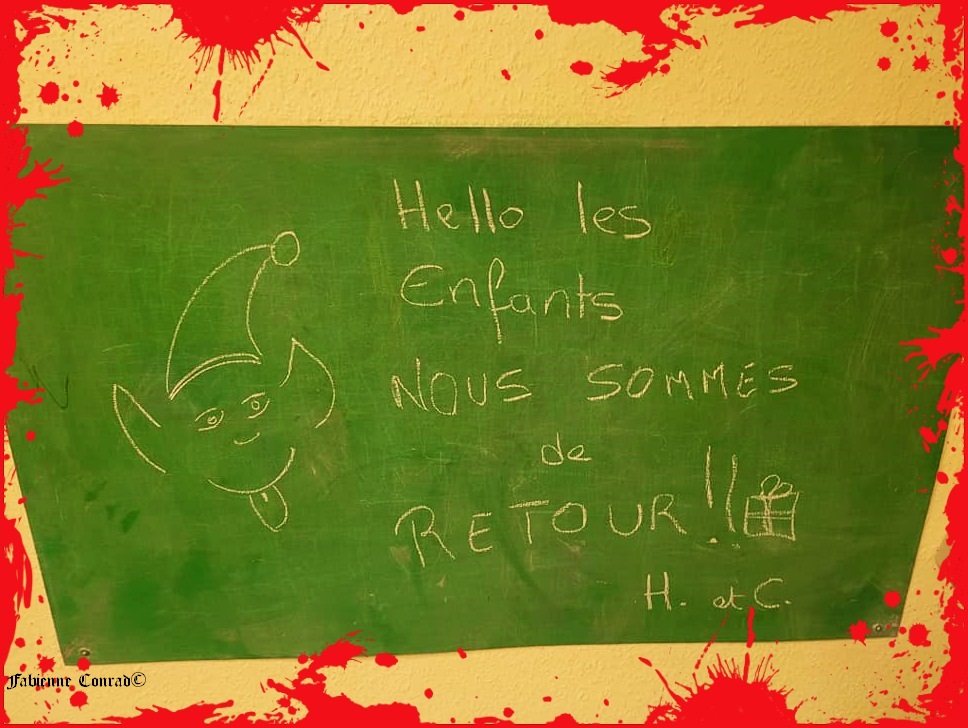 Hello les
Enfants
NOUS SOMMES
de
RETOUR !!
H. et C.
Fabienne Conrad©